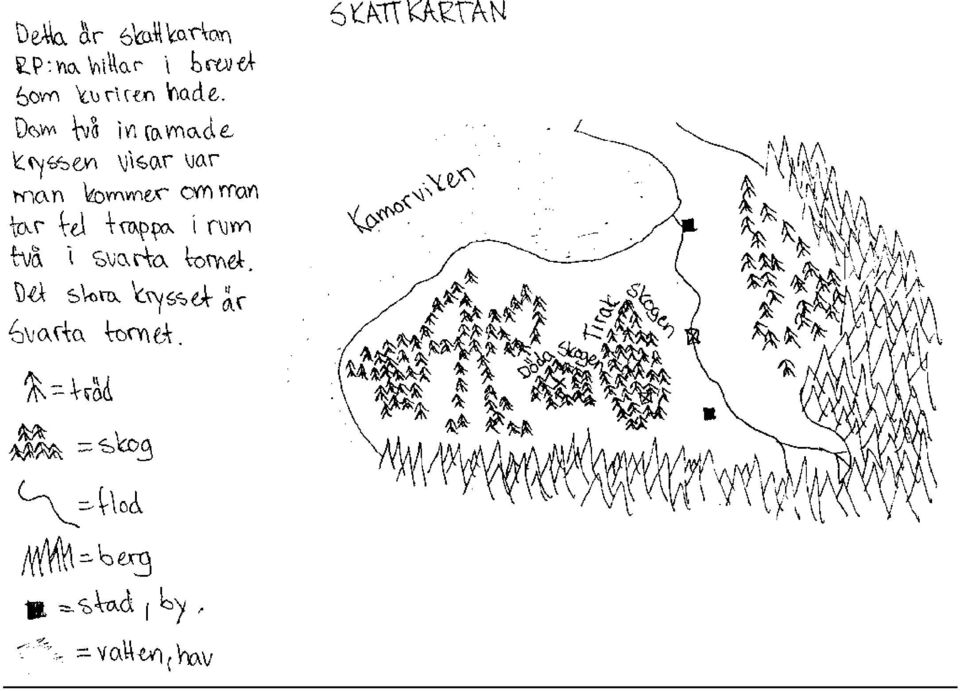 SKATTKARTAN
Detta är skattkartan
RP:na hittar i brevet
som kuriren hade.
Dom två inramade
kryssen visar var
man kommer om man
tar fel trappa i rum
två i svarta tornet.
Det stora krysset är
Svarta tornet.
= träd
= skog
= flod
= berg
= stad, by.
= vatten, hav
Kamorviken
Tirak Skogen
Döda Skogen